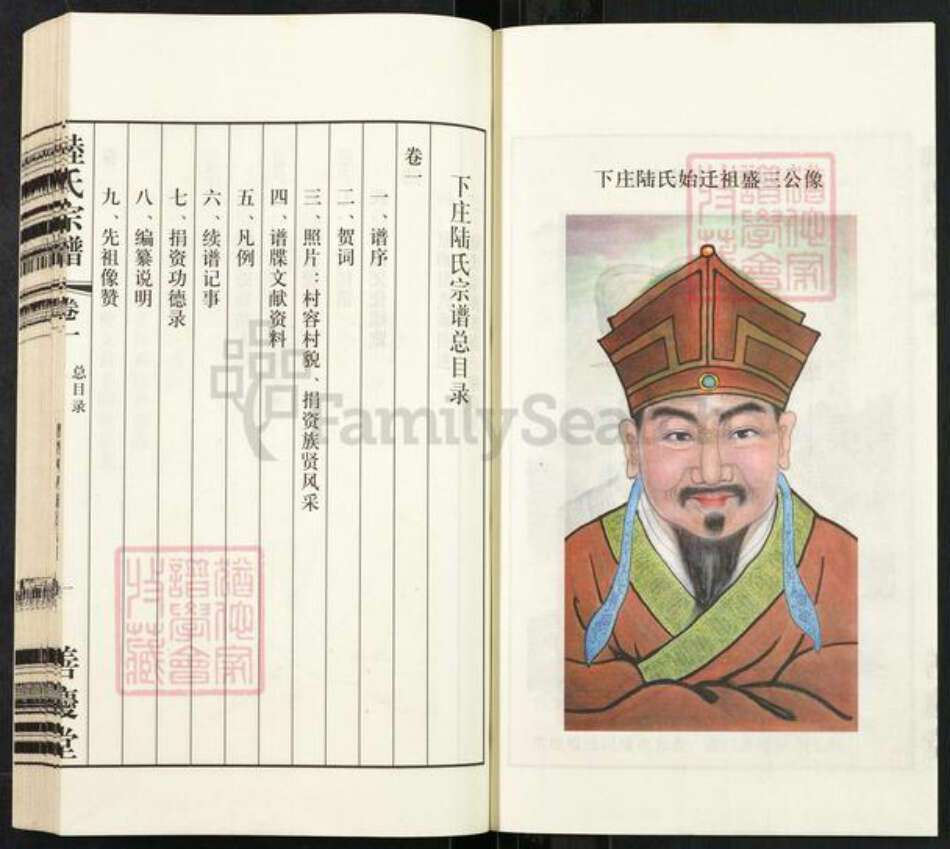 下庄陆氏始迁祖盛三公像
下庄陆氏宗谱总目录
卷一
一、谱序
二、贺词
三、照片：村容村貌、捐资族贤风采
四、谱牒文献资料
五、凡例
六、续谱记事
七、捐资功德录
八、编纂说明
九、先祖像赞
陸氏宗譜
卷一
总目录
一
善慶堂
FamilySearch